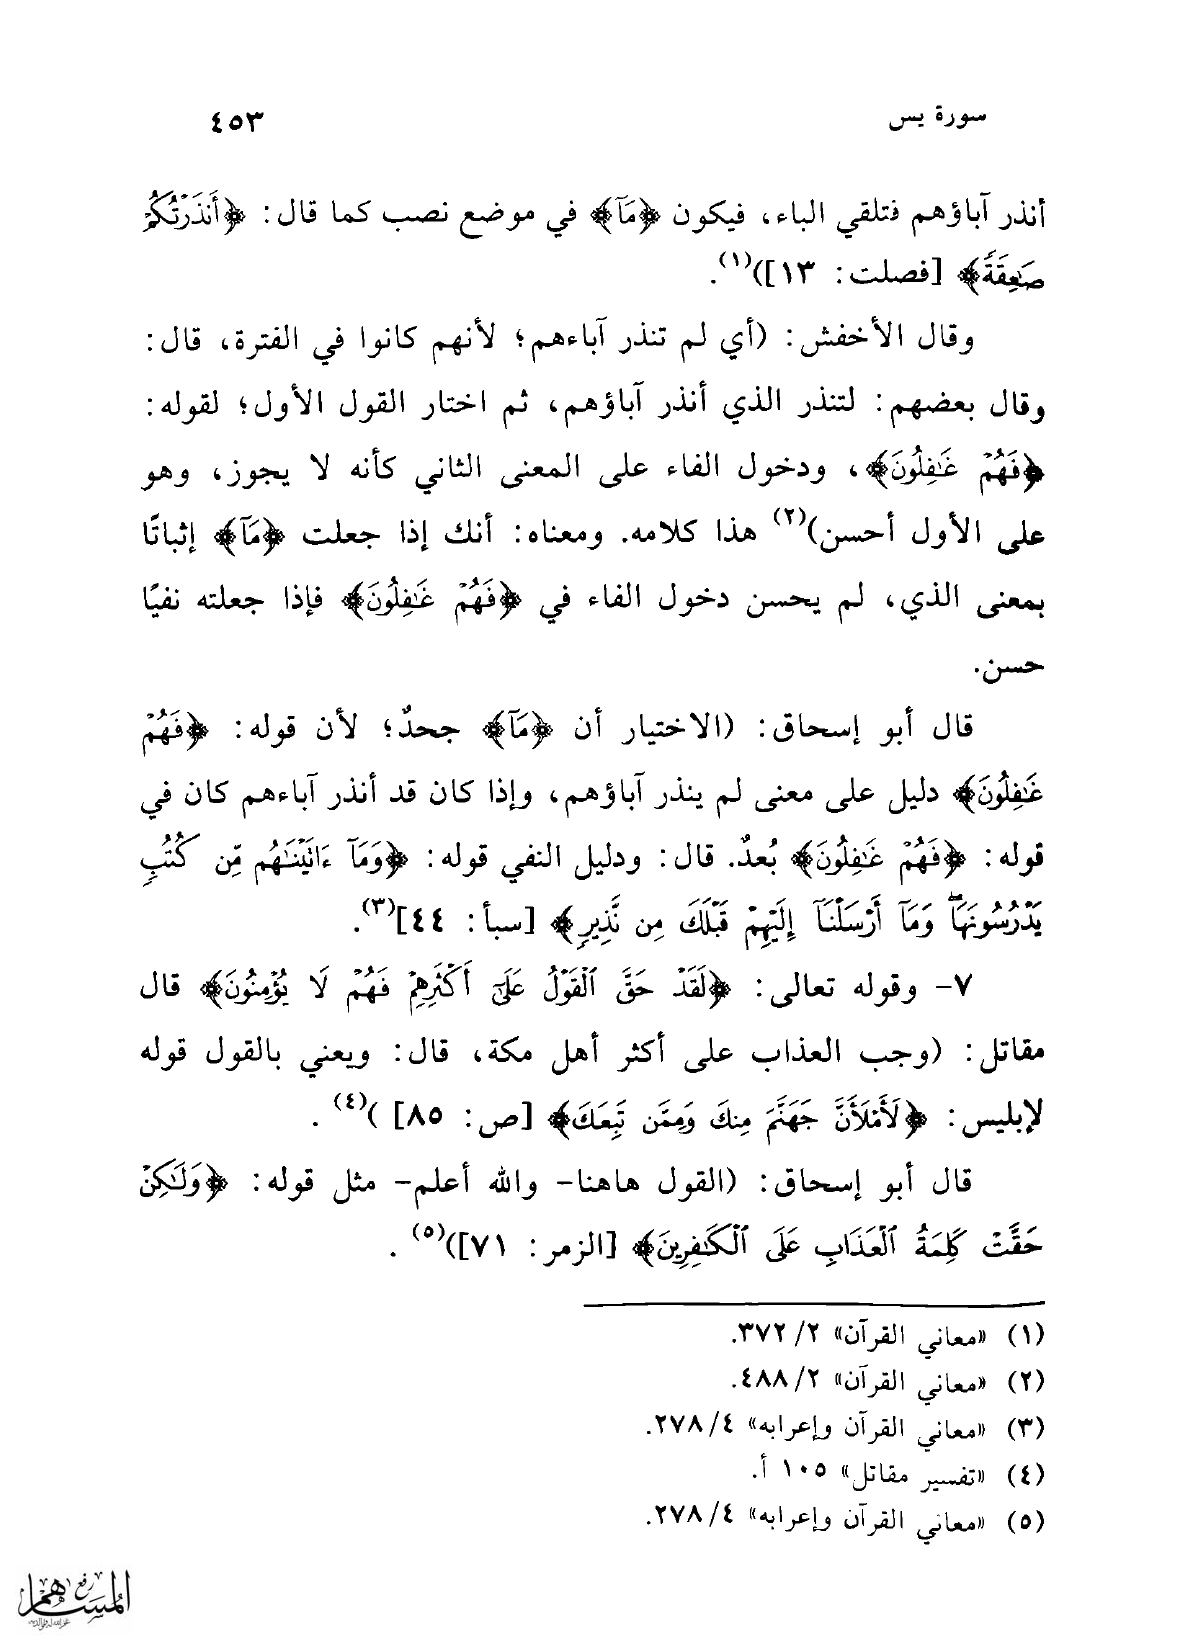 سورة يس ٤٥٣
أنذر آباؤهم فتلقي الباء، فيكون ﴿مَآ﴾ في موضع نصب كما قال: ﴿أَنذَرْتُكُمْ
صَٰعِقَةً﴾ [فصلت: ١٣])(١).
وقال الأخفش: (أي لم تنذر آباءهم؛ لأنهم كانوا في الفترة، قال:
وقال بعضهم: لتنذر الذي أنذر آباؤهم، ثم اختار القول الأول؛ لقوله:
﴿فَهُمْ غَٰفِلُونَ﴾، ودخول الفاء على المعنى الثاني كأنه لا يجوز، وهو
على الأول أحسن)(٢) هذا كلامه. ومعناه: أنك إذا جعلت ﴿مَآ﴾ إثباتًا
بمعنى الذي، لم يحسن دخول الفاء في ﴿فَهُمْ غَٰفِلُونَ﴾ فإذا جعلته نفيًا
حسن.
قال أبو إسحاق: (الاختيار أن ﴿مَآ﴾ جحدٌ؛ لأن قوله: ﴿فَهُمْ
غَٰفِلُونَ﴾ دليل على معنى لم ينذر آباؤهم، وإذا كان قد أنذر آباءهم كان في
قوله: ﴿فَهُمْ غَٰفِلُونَ﴾ بُعدٌ. قال: ودليل النفي قوله: ﴿وَمَآ ءَاتَيْنَٰهُم مِّن كُتُبٍ
يَدْرُسُونَهَا ۖ وَمَآ أَرْسَلْنَآ إِلَيْهِمْ قَبْلَكَ مِن نَّذِيرٍ﴾ [سبأ: ٤٤](٣).
٧- وقوله تعالى: ﴿لَقَدْ حَقَّ ٱلْقَوْلُ عَلَىٰٓ أَكْثَرِهِمْ فَهُمْ لَا يُؤْمِنُونَ﴾ قال
مقاتل: (وجب العذاب على أكثر أهل مكة، قال: ويعني بالقول قوله
لإبليس: ﴿لَأَمْلَأَنَّ جَهَنَّمَ مِنكَ وَمِمَّن تَبِعَكَ﴾ [ص: ٨٥] )(٤) .
قال أبو إسحاق: (القول هاهنا- والله أعلم- مثل قوله: ﴿وَلَٰكِنْ
حَقَّتْ كَلِمَةُ ٱلْعَذَابِ عَلَى ٱلْكَٰفِرِينَ﴾ [الزمر: ٧١])(٥) .
(١) «معاني القرآن» ٢/ ٣٧٢.
(٢) «معاني القرآن» ٢/ ٤٨٨.
(٣) «معاني القرآن وإعرابه» ٤/ ٢٧٨.
(٤) «تفسير مقاتل» ١٠٥ أ.
(٥) «معاني القرآن وإعرابه» ٤/ ٢٧٨.